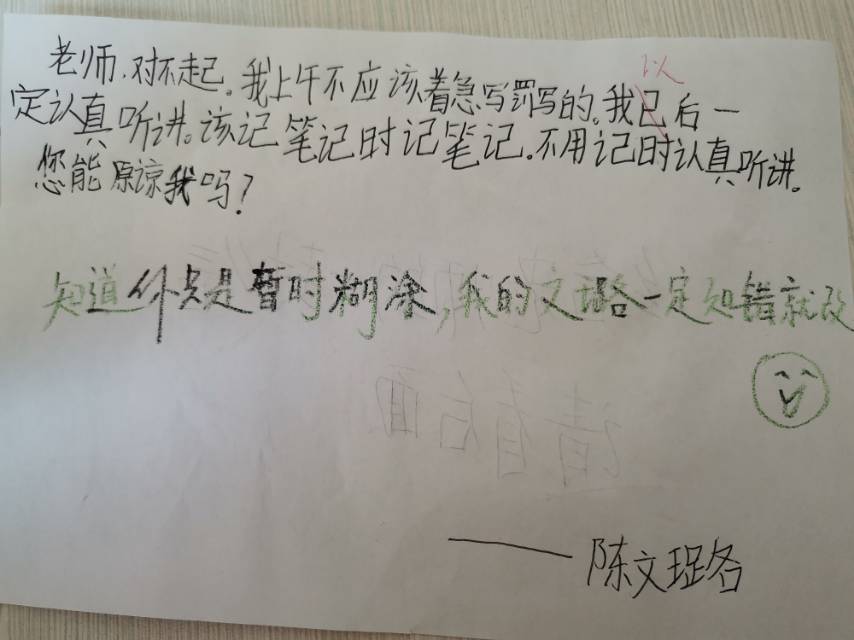 老师,对不起。我上午不应该着急写罚写的。我已后一
以
定认真听讲。该记笔记时记笔记。不用记时认真听讲。
您能原谅我吗?
知道你只是暂时糊涂,我的文璐一定知错就改
请看后面
——陈文璐